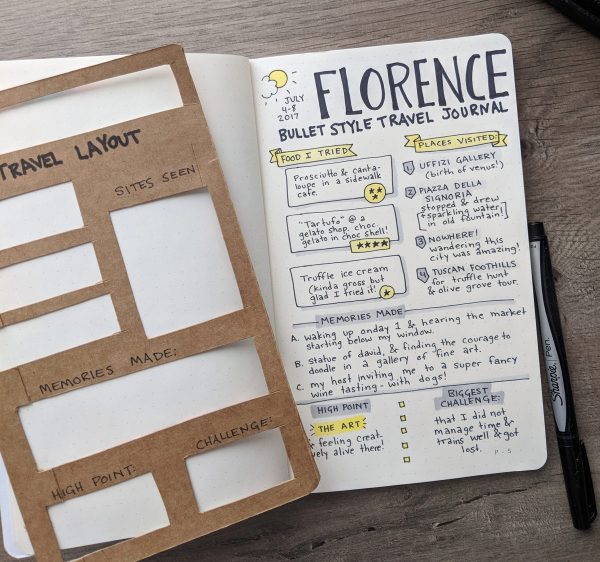 TRAVEL LAYOUT
SITES SEEN
MEMORIES MADE:
HIGH POINT:
CHALLENGE:
JULY
4-8
2017
FLORENCE
BULLET STYLE TRAVEL JOURNAL
FOOD I TRIED
Prosciutto & canta-
loupe in a sidewalk
cafe.
"Tartufo" @ a
gelato shop. choc.
gelato in choc shell!
Truffle ice cream
(kinda gross but
glad I tried it!
PLACES VISITED:
1. UFFIZI GALLERY
(birth of venus!)
2 PIAZZA DELLA
SIGNORIA
stopped & drew
sparkling water
in old fountain!
3 NOWHERE!
wandering this
city was amazing!
4 TUSCAN FOOTHILLS
for truffle hunt
& olive grove tour.
MEMORIES MADE
A. waking up onday 1 & hearing the market
starting below my window.
B. statue of david, & finding the courage to
doodle in a gallery of fine art.
C. my host inviting me to a super fancy
wine tasting - with dogs!
HIGH POINT
THE ART
& feeling creat-
vely alive there!
BIGGEST
CHALLENGE:
that I did not
manage time &
trains well & got
lost.
P. 5
Sharpie Pen